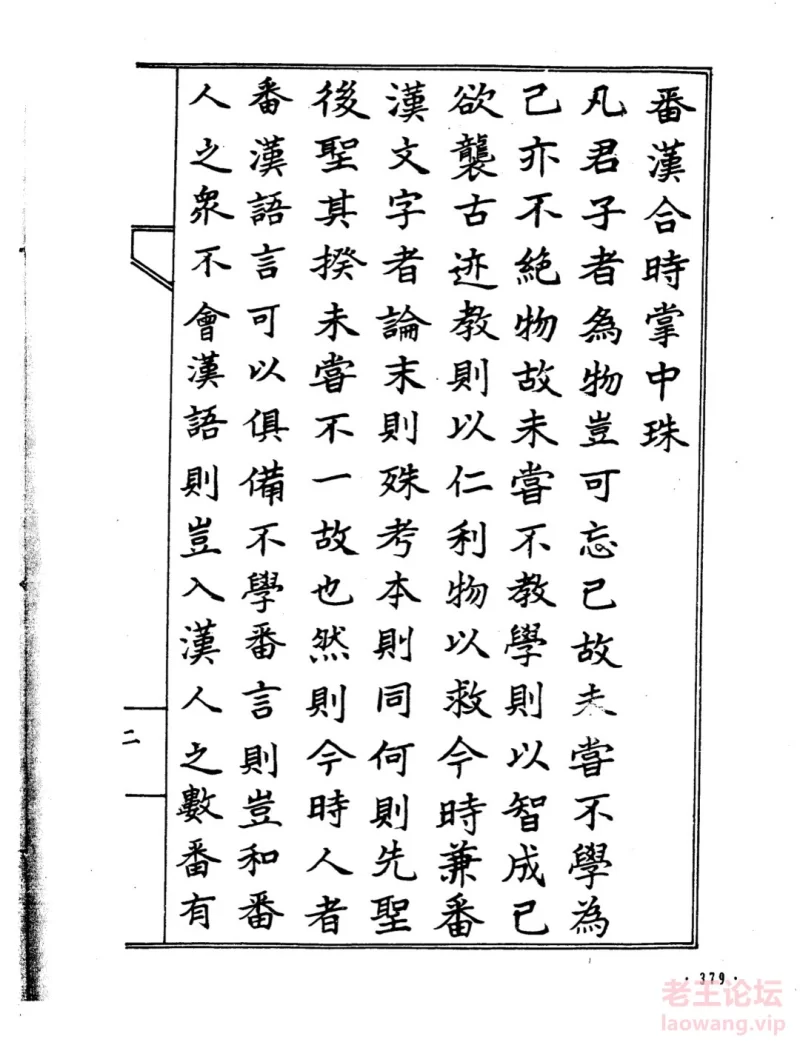 番漢合時掌中珠
凡君子者為物豈可忘己故未嘗不學為
己亦不絕物故未嘗不教學則以智成己
欲襲古迹教則以仁利物以救今時兼番
漢文字者論末則殊考本則同何則先聖
後聖其揆未嘗不一故也然則今時人者
番漢語言可以俱備不學番言則豈和番
人之衆不會漢語則豈入漢人之數番有
二
·379·
老王论坛
laowang.vip